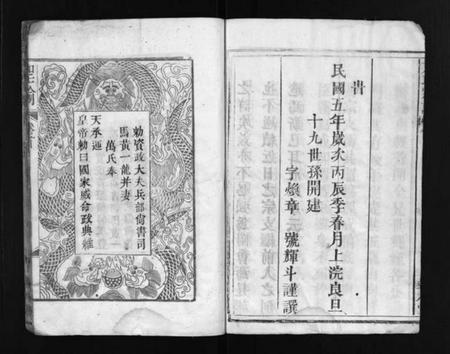 旹
民國五年歲次丙辰季春月上浣良旦
十九世孫開建
字煥章 號輝斗謹譔
聖諭
勅資政大夫兵部尙書司
馬黃一龍并妻
萬氏奉
天承運
皇帝勅曰國家威命政典雖